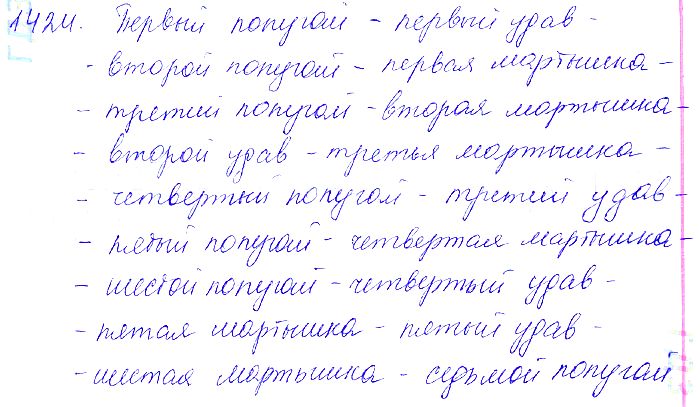 1424. Первый попугай - первый удав -
- второй попугай - первая мартышка -
- третий попугай - вторая мартышка -
- второй удав - третья мартышка -
- четвертый попугай - третий удав -
- пятый попугай - четвертая мартышка -
- шестой попугай - четвертый удав -
- пятая мартышка - пятый удав -
- шестая мартышка - седьмой попугай